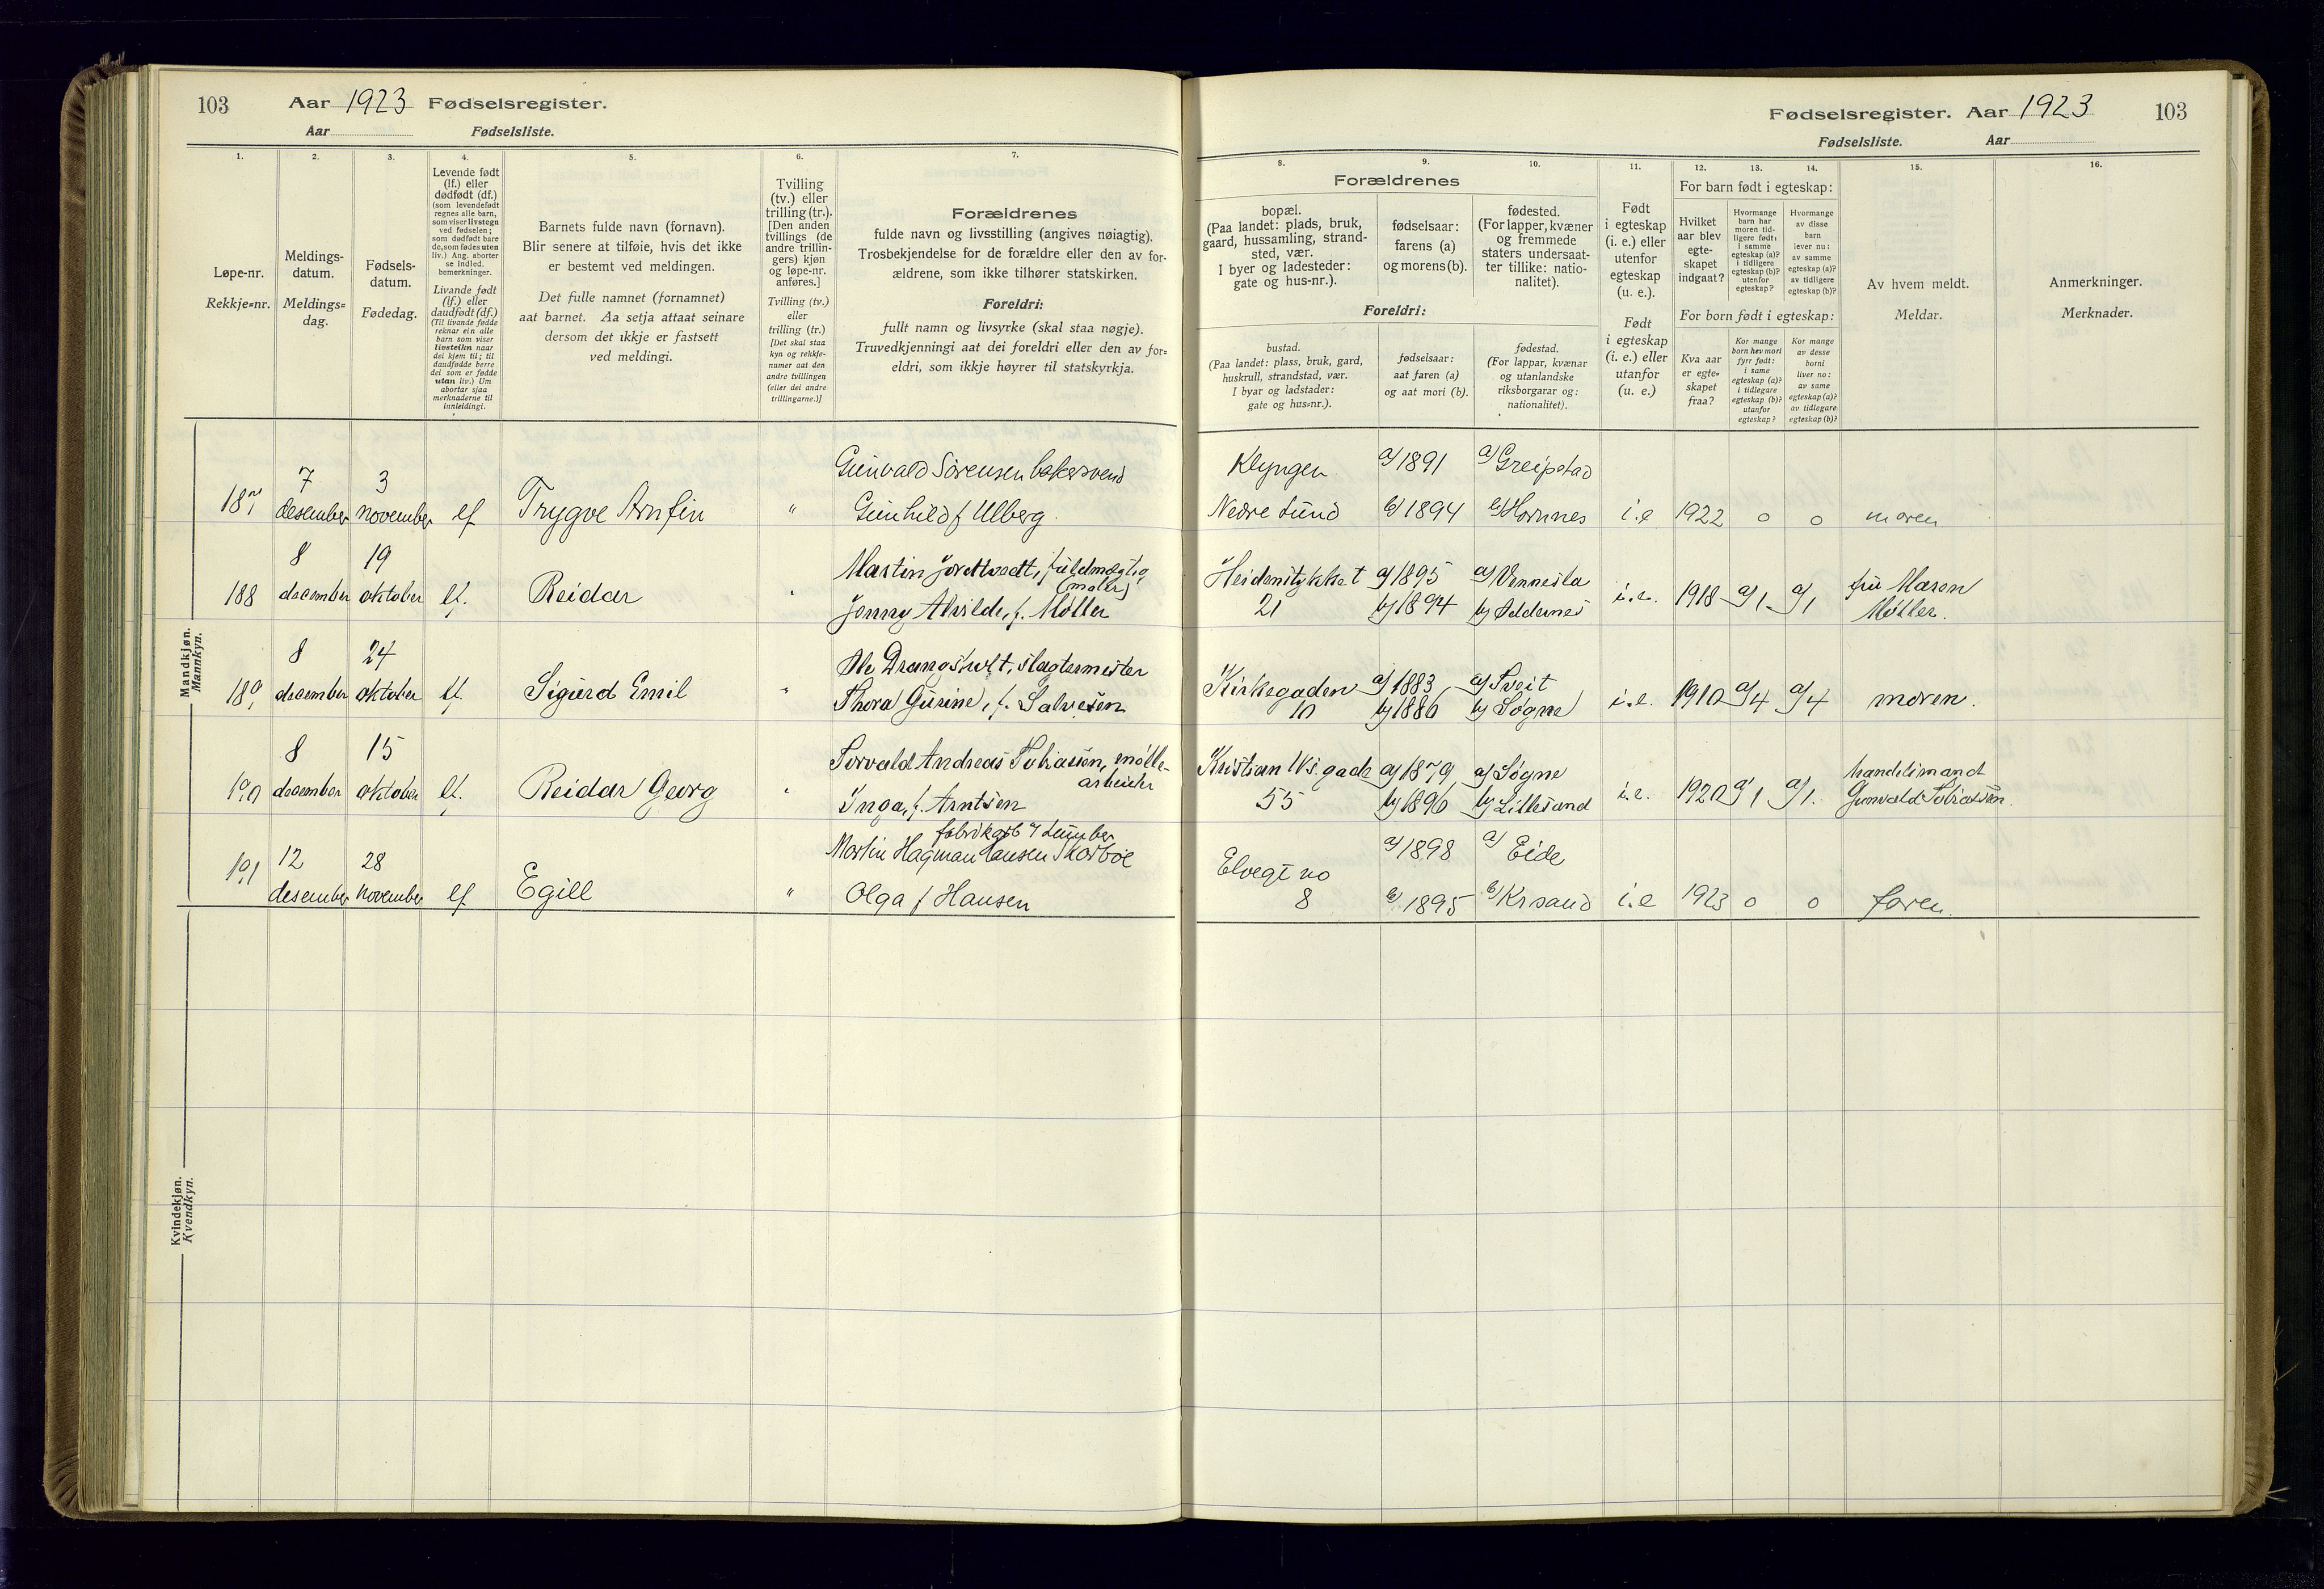 103
Aar 1923 Fødselsregister.
Aar Fødselsliste.
1.
2.
3.
4.
5.
6.
7.
Løpe-nr.
Rekkje=nr.
Meldings-
datum.
Meldings=
dag.
Fødsels-
datum.
Fødedag.
Levende født
(lf.) eller
dødfødt (df.)
(som levendefødt
regnes alle barn,
som viser livstegn
ved fødselen;
som dødfødt bare
de, som fødes uten
liv.) Ang. aborter
se indled.
bemerkninger.
Livande født
(lf.) eller
daudfødt (df.)
(Til livande fødde
reknar ein alle
barn som viser
livsteikn naar
dei kjem til; til
daudfødde berre
dei som er fødde
utan liv.) Um
abortar sjaa
merknaderne til
innleidingi.
Barnets fulde navn (fornavn).
Blir senere at tilføie, hvis det ikke
er bestemt ved meldingen.
Det fulle namnet (fornamnet)
aat barnet. Aa setja attaat seinare
dersom det ikkje er fastsett
ved meldingi.
Tvilling
(tv.) eller
trilling (tr.).
[Den anden
tvillings (de
andre trillin-
gers) kjøn
og løpe-nr.
anføres.]
Tvilling (tv.)
eller
trilling (tr.)
[Det skal staa
kyn og rekkje-
numer aat den
andre tvillingen
(eller dei andre
trillingarne.)]
Forældrenes
fulde navn og livsstilling (angives nøiagtig).
Trosbekjendelse for de forældre eller den av for-
ældrene, som ikke tilhører statskirken.
Foreldri:
fullt namn og livsyrke (skal staa nøgje).
Truvedkjenningi aat dei foreldri eller den av for=
eldri, som ikkje høyrer til statskyrkja.
Mandkjøn.
Mannkyn.
187
7
desember
3
november
lf
Trygve Arnfin
"
Gunvald Sörensen bakersvend
Gunhild f Ulberg
188
8
december
19
oktober
lf.
Reidar
"
Martin Jorttveit, fuldmægtig
(maler)
Jenny Alvilde, f. Møller
189
8
december
24
oktober
lf.
Sigurd Emil
"
Ole Drangsholt, slagtermester
Thora Gurine, f. Salvesen
190
8
december
15
oktober
lf.
Reidar Georg
"
Torvald Andreas Tobiassen, mølle-
arbeider
Inga, f. Arntsen
191
12
desember
28
november
lf
Egill
"
Martin Hagman Hansen
Olga f Hansen
Kvindekjøn.
Kvendkyn.
Fødselsregister. Aar 1923
103
Fødselsliste. Aar
8.
9.
10.
11.
12.
13.
14.
15.
16.
Forældrenes
bopæl.
(Paa landet: plads, bruk,
gaard, hussamling, strand-
sted, vær.
I byer og ladesteder:
gate og hus-nr.).
fødselsaar:
farens (a)
og morens (b).
fødested.
(For lapper, kvæner
og fremmede
staters undersaat-
ter tillike: natio-
nalitet).
Foreldri:
bustad.
(Paa landet: plass, bruk, gard,
huskrull, strandstad, vær.
I byar og ladstader:
gate og hus=nr.).
fødselsaar:
aat faren (a)
og aat mori (b).
fødestad.
(For lappar, kvænar
og utanlandske
riksborgarar og:
nationalitet).
Født
i egteskap
(i. e.) eller
utenfor
egteskap
(u. e.).
Født
i egteskap
(i. e.) eller
utanfor
(u. e.)
For barn født i egteskap:
Hvilket
aar blev
egte-
skapet
indgaat?
Hvormange
barn har
moren tid-
ligere født:
i samme
egteskap (a)?
i tidligere
egteskap (b)?
utenfor
egteskap?
Hvormange
av disse
barn
lever nu:
av samme
egteskap (a)?
av tidligere
egteskap (b)?
For born født i egteskap:
Kva aar
er egte=
skapet
fraa?
Kor mange
born hev mori
fyrr født:
i same
egteskap (a)?
i tidlegare
egteskap (b)?
utanfor
egteskap?
Kor mange
av desse
borni
liver no:
av same
egteskap (a)?
av tidlegare
egteskap (b)?
Av hvem meldt.
Meldar.
Anmerkninger.
Merknader.
Klyngen
Nedre Lund
a) 1891
b) 1894
a) Greipstad
b) Hornnes
i.e
1922
o
o
moren
Heidenstykket
21
a) 1895
b) 1894
a) Vennesla
b) Oddernes
i.e.
1918
a) 1
a) 1
fru Maren
Møller.
Kirkegaden
10
a) 1883
b) 1886
a) Tveit
b) Søgne
i.e.
1910
a) 4
a) 4
moren.
Kristian IVs. gade
55
a) 1879
b) 1896
a) Søgne
b) Lillesand
i.e.
1920
a) 1
a) 1.
handelsmand
Gunvald Tobiassen.
Elvegt no
8
a) 1898
b) 1895
a) Eide
b) Krsand
i.e
1923
o
o
faren.